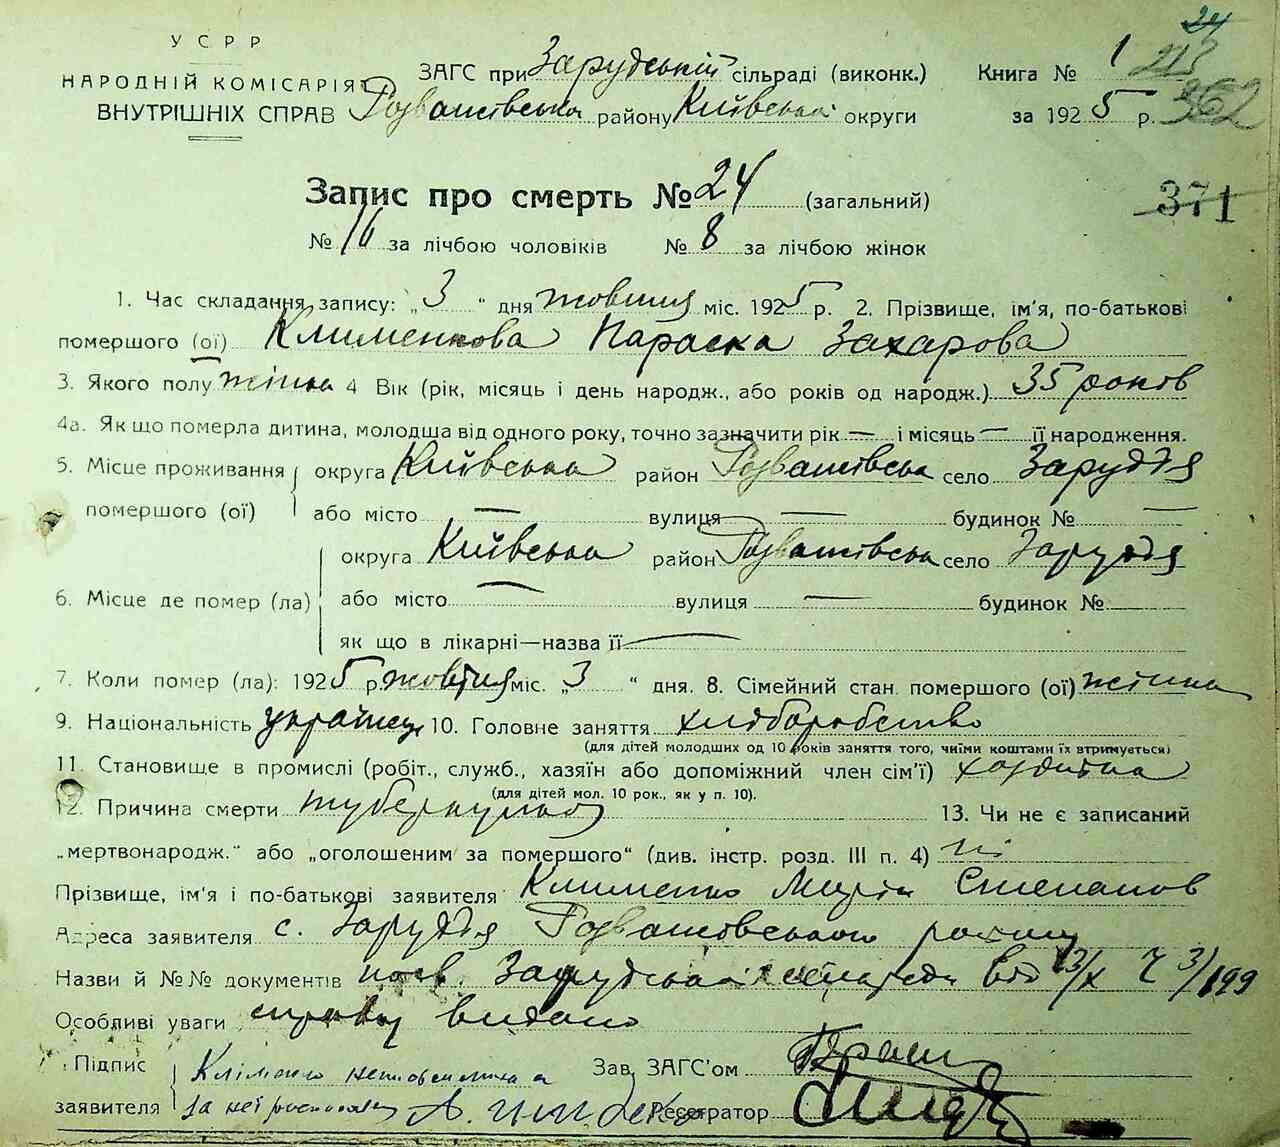 24
УСРР
НАРОДНІЙ КОМІСАРІЯТ
ВНУТРІШНІХ СПРАВ
ЗАГС при Зарудській сільраді (виконк.)
району Київської округи
Книга № 1 213
за 1925 р. 362
Запис про смерть № 24 (загальний)
371
№ 16 за лічбою чоловіків № 8 за лічбою жінок
1. Час складання запису: „3“ дня жовтня міс. 1925 р. 2. Прізвище, ім'я, по-батькові
помершого (ої) Клименкова Параска Захарова
3. Якого полу жінка 4 Вік (рік, місяць і день народж., або років од народж.) 35 років
4а. Як що померла дитина, молодша від одного року, точно зазначити рік — і місяць — її народження.
5. Місце проживання помершого (ої)
округа Київська район село Заруддя
або місто — вулиця — будинок № —
6. Місце де помер (ла)
округа Київська район село Заруддя
або місто — вулиця — будинок №
як що в лікарні—назва її —
7. Коли помер (ла): 1925 р. жовтня міс. „3“ дня. 8. Сімейний стан помершого (ої) жінка
9. Національність 10. Головне заняття хліборобство
(для дітей молодших од 10 років заняття того, чиїми коштами їх втримується)
11. Становище в промислі (робіт., служб., хазяїн або допоміжний член сім'ї)
(для дітей мол. 10 рок., як у п. 10).
12. Причина смерти туберкульоз 13. Чи не є записаний
„мертвонародж.“ або „оголошеним за помершого“ (див. інстр. розд. III п. 4) ні
Прізвище, ім'я і по-батькові заявителя Клименко Степанов
Адреса заявителя с. Заруддя району
Назви й №№ документів посв. Зарудської сільради від 3/X Ч 3/199
Особливі уваги видано
Підпис заявителя
Зав. ЗАГС'ом
за неї А.
Реєстратор